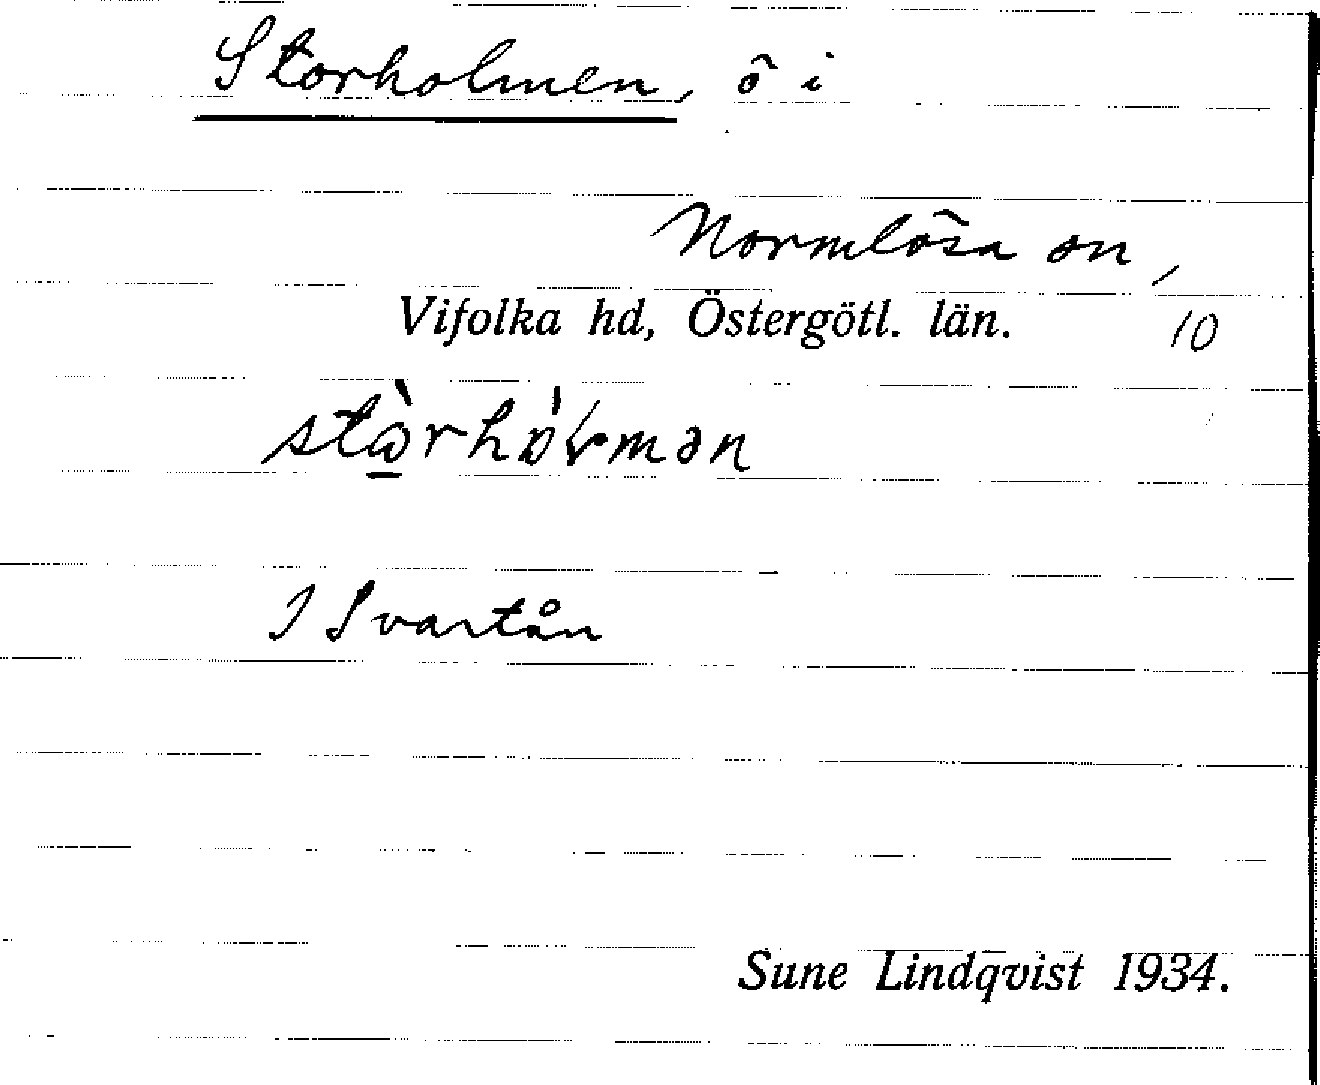 Storholmen, ö i
Normlösa sn,
Vifolka hd, Östergötl. län. 10
I Svartån
Sune Lindqvist 1934.